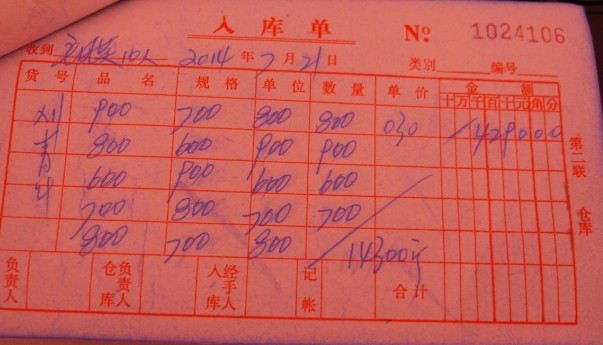 入库单 № 1024106
收到 10人 2014年7月21日 类别 编号
货号 品名 规格 单位 数量 单价 金额
十万千百十元角分
900 700 800 800 030 429000
800 600 900 900
600 900 600 600
700 800 700 700
800 700 800 14300
合计
负责人 仓库负责人 入库经手人 记帐
第二联 仓库